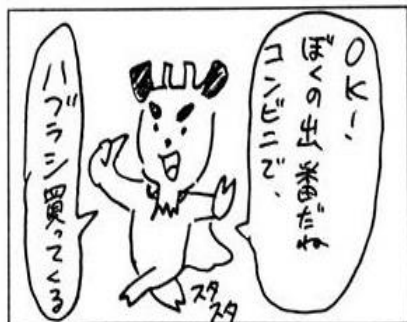 OK!
ぼくの出番だね
コンビニで、
ハブラシ買ってくる
スタ
スタ